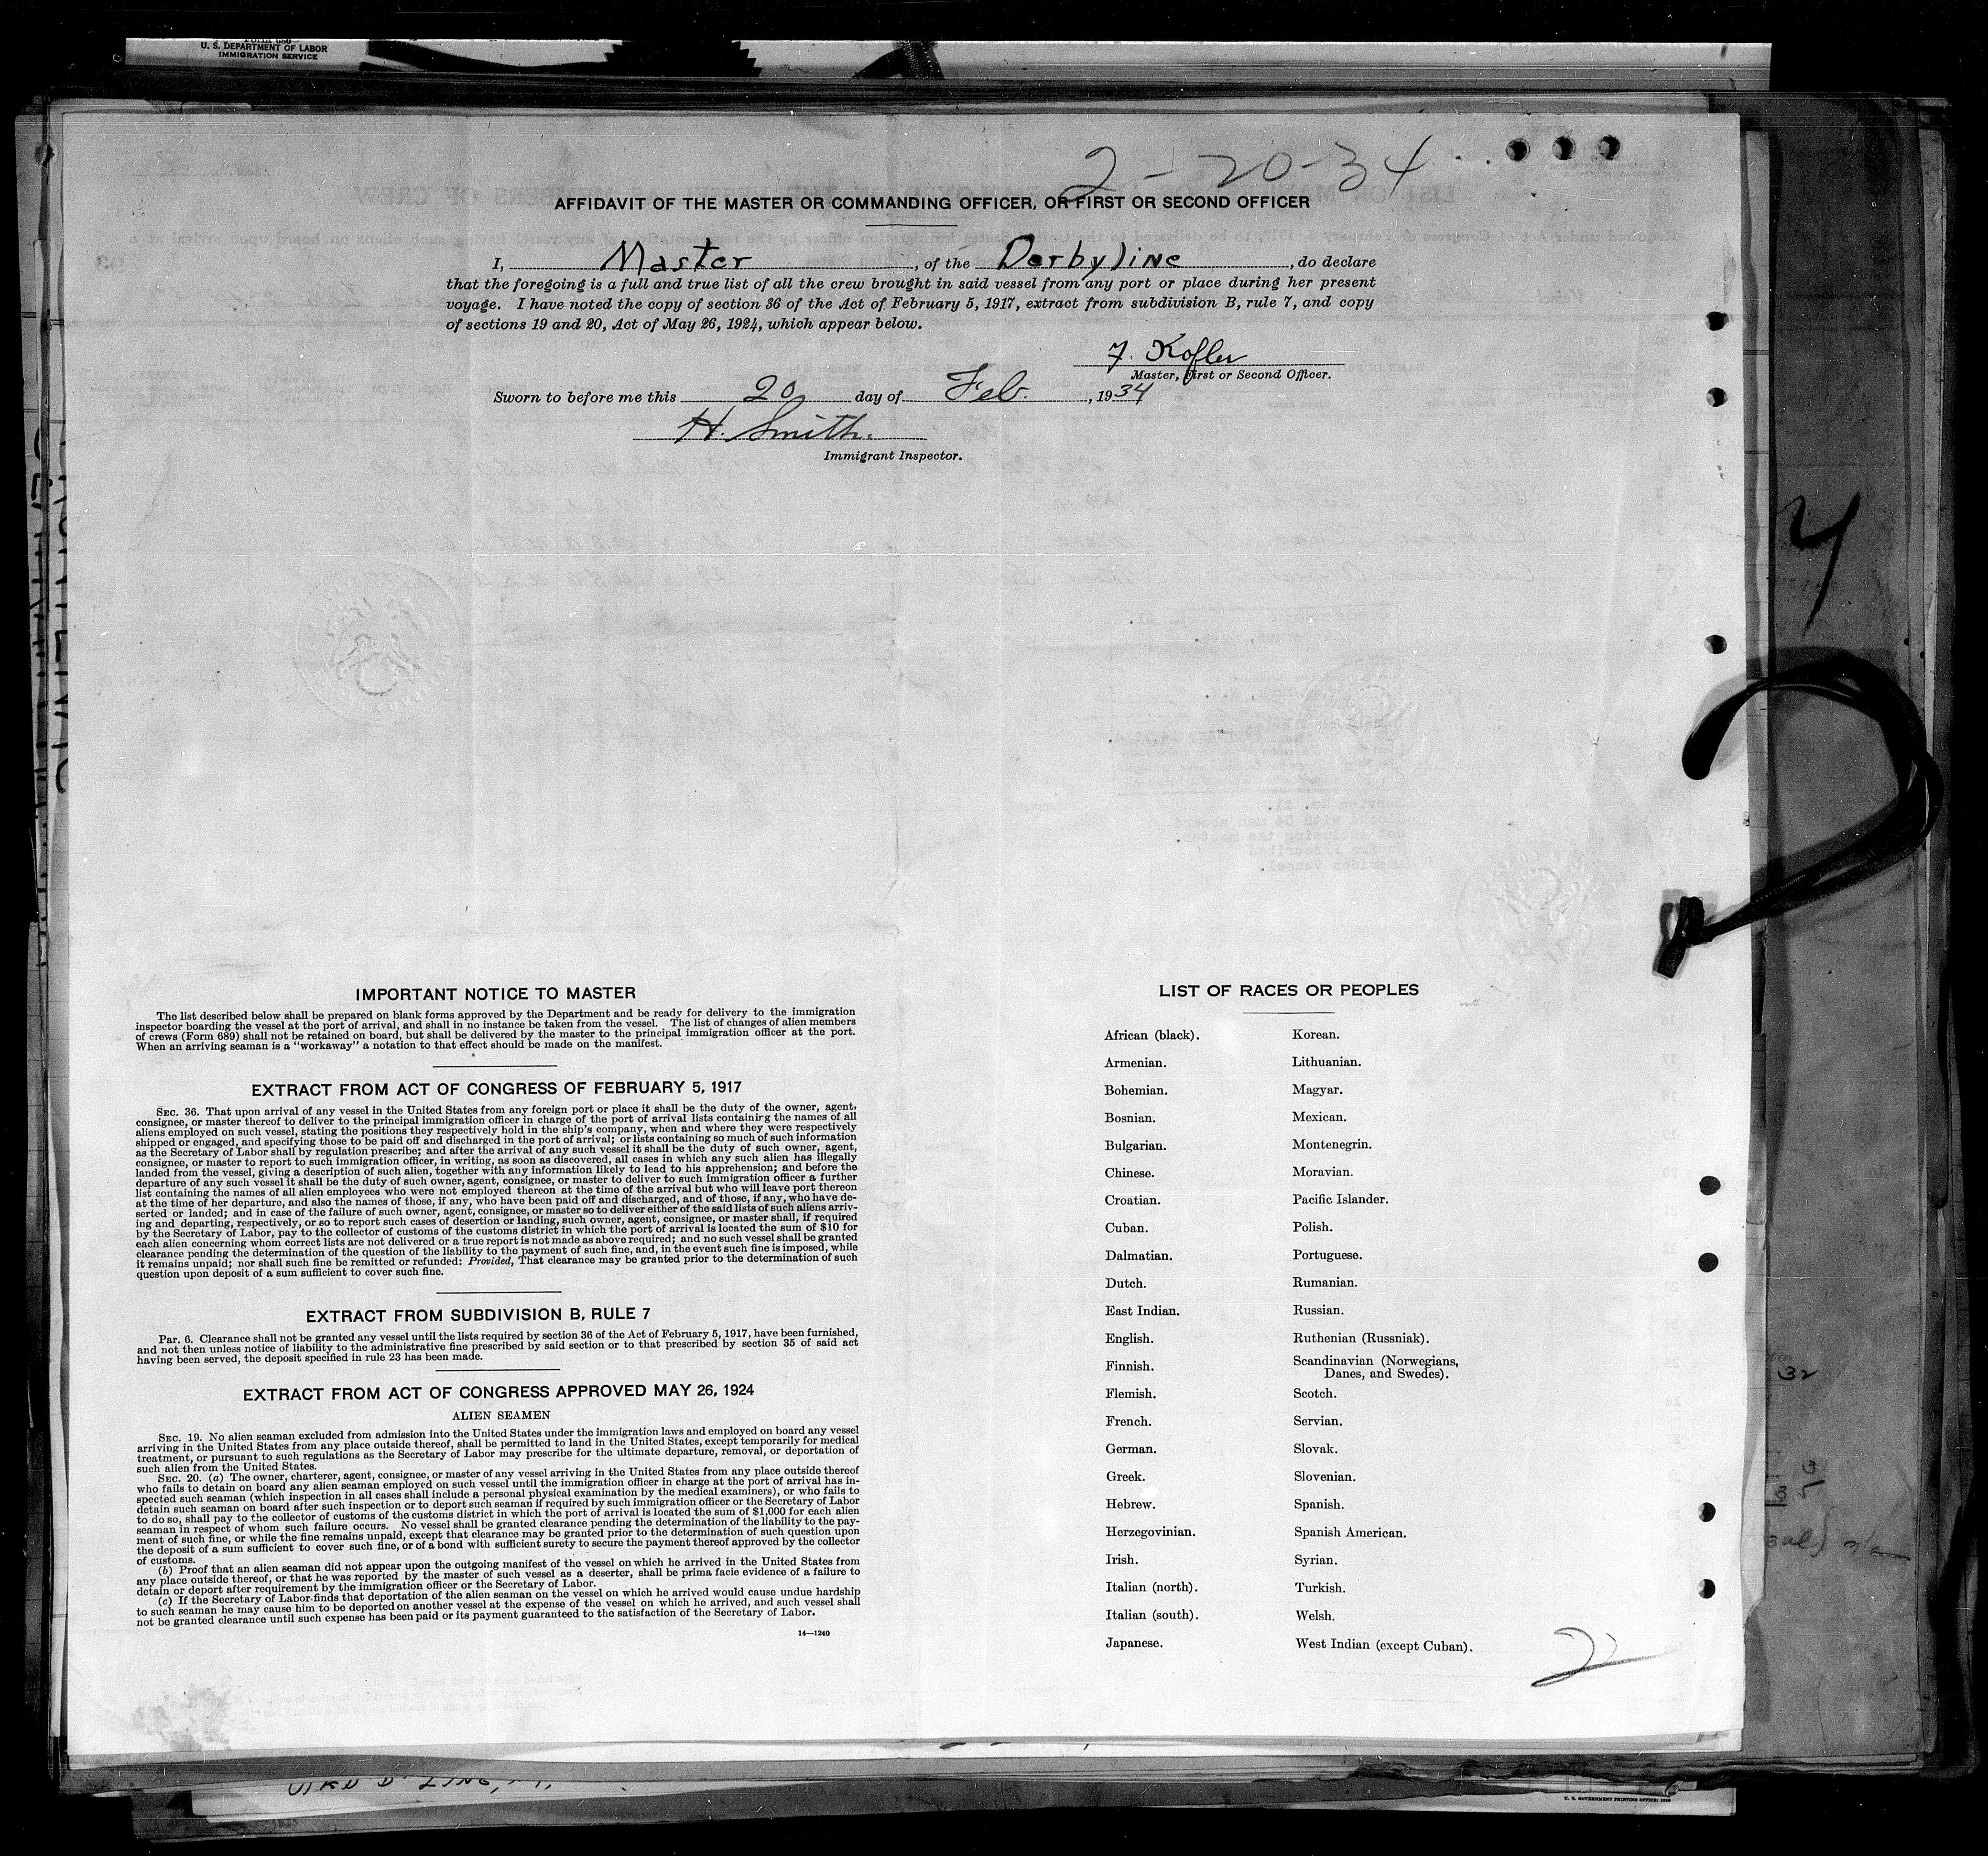 U. S. DEPARTMENT OF LABOR
IMMIGRATION SERVICE
2-20-34
AFFIDAVIT OF THE MASTER OR COMMANDING OFFICER, OR FIRST OR SECOND OFFICER
I, Master, of the Derbyline, do declare
that the foregoing is a full and true list of all the crew brought in said vessel from any port or place during her present
voyage. I have noted the copy of section 36 of the Act of February 5, 1917, extract from subdivision B, rule 7, and copy
of sections 19 and 20, Act of May 26, 1924, which appear below.
F. Kofler
Master, First or Second Officer.
Sworn to before me this 20 day of Feb., 1934
H. Smith.
Immigrant Inspector.
IMPORTANT NOTICE TO MASTER
The list described below shall be prepared on blank forms approved by the Department and be ready for delivery to the immigration
inspector boarding the vessel at the port of arrival, and shall in no instance be taken from the vessel. The list of changes of alien members
of crews (Form 689) shall not be retained on board, but shall be delivered by the master to the principal immigration officer at the port.
When an arriving seaman is a "workaway" a notation to that effect should be made on the manifest.
EXTRACT FROM ACT OF CONGRESS OF FEBRUARY 5, 1917
SEC. 36. That upon arrival of any vessel in the United States from any foreign port or place it shall be the duty of the owner, agent,
consignee, or master thereof to deliver to the principal immigration officer in charge of the port of arrival lists containing the names of all
aliens employed on such vessel, stating the positions they respectively hold in the ship's company, when and where they were respectively
shipped or engaged, and specifying those to be paid off and discharged in the port of arrival; or lists containing so much of such information
as the Secretary of Labor shall by regulation prescribe; and after the arrival of any such vessel it shall be the duty of such owner, agent,
consignee, or master to report to such immigration officer, in writing, as soon as discovered, all cases in which any such alien has illegally
landed from the vessel, giving a description of such alien, together with any information likely to lead to his apprehension; and before the
departure of any such vessel it shall be the duty of such owner, agent, consignee, or master to deliver to such immigration officer a further
list containing the names of all alien employees who were not employed thereon at the time of the arrival but who will leave port thereon
at the time of her departure, and also the names of those, if any, who have been paid off and discharged, and of those, if any, who have de-
serted or landed; and in case of the failure of such owner, agent, consignee, or master so to deliver either of the said lists of such aliens arriv-
ing and departing, respectively, or so to report such cases of desertion or landing, such owner, agent, consignee, or master shall, if required
by the Secretary of Labor, pay to the collector of customs of the customs district in which the port of arrival is located the sum of $10 for
each alien concerning whom correct lists are not delivered or a true report is not made as above required; and no such vessel shall be granted
clearance pending the determination of the question of the liability to the payment of such fine, and, in the event such fine is imposed, while
it remains unpaid; nor shall such fine be remitted or refunded: Provided, That clearance may be granted prior to the determination of such
question upon deposit of a sum sufficient to cover such fine.
EXTRACT FROM SUBDIVISION B, RULE 7
Par. 6. Clearance shall not be granted any vessel until the lists required by section 36 of the Act of February 5, 1917, have been furnished,
and not then unless notice of liability to the administrative fine prescribed by said section or to that prescribed by section 35 of said act
having been served, the deposit specified in rule 23 has been made.
EXTRACT FROM ACT OF CONGRESS APPROVED MAY 26, 1924
ALIEN SEAMEN
SEC. 19. No alien seaman excluded from admission into the United States under the immigration laws and employed on board any vessel
arriving in the United States from any place outside thereof, shall be permitted to land in the United States, except temporarily for medical
treatment, or pursuant to such regulations as the Secretary of Labor may prescribe for the ultimate departure, removal, or deportation of
such alien from the United States.
SEC. 20. (a) The owner, charterer, agent, consignee, or master of any vessel arriving in the United States from any place outside thereof
who fails to detain on board any alien seaman employed on such vessel until the immigration officer in charge at the port of arrival has in-
spected such seaman (which inspection in all cases shall include a personal physical examination by the medical examiners), or who fails to
detain such seaman on board after such inspection or to deport such seaman if required by such immigration officer or the Secretary of Labor
to do so, shall pay to the collector of customs of the customs district in which the port of arrival is located the sum of $1,000 for each alien
seaman in respect of whom such failure occurs. No vessel shall be granted clearance pending the determination of the liability to the pay-
ment of such fine, or while the fine remains unpaid, except that clearance may be granted prior to the determination of such question upon
the deposit of a sum sufficient to cover such fine, or of a bond with sufficient surety to secure the payment thereof approved by the collector
of customs.
(b) Proof that an alien seaman did not appear upon the outgoing manifest of the vessel on which he arrived in the United States from
any place outside thereof, or that he was reported by the master of such vessel as a deserter, shall be prima facie evidence of a failure to
detain or deport after requirement by the immigration officer or the Secretary of Labor.
(c) If the Secretary of Labor finds that deportation of the alien seaman on the vessel on which he arrived would cause undue hardship
to such seaman he may cause him to be deported on another vessel at the expense of the vessel on which he arrived, and such vessel shall
not be granted clearance until such expense has been paid or its payment guaranteed to the satisfaction of the Secretary of Labor.
14—1240
LIST OF RACES OR PEOPLES
African (black). Korean.
Armenian. Lithuanian.
Bohemian. Magyar.
Bosnian. Mexican.
Bulgarian. Montenegrin.
Chinese. Moravian.
Croatian. Pacific Islander.
Cuban. Polish.
Dalmatian. Portuguese.
Dutch. Rumanian.
East Indian. Russian.
English. Ruthenian (Russniak).
Finnish. Scandinavian (Norwegians,
Danes, and Swedes).
Flemish. Scotch.
French. Servian.
German. Slovak.
Greek. Slovenian.
Hebrew. Spanish.
Herzegovinian. Spanish American.
Irish. Syrian.
Italian (north). Turkish.
Italian (south). Welsh.
Japanese. West Indian (except Cuban).
22
32